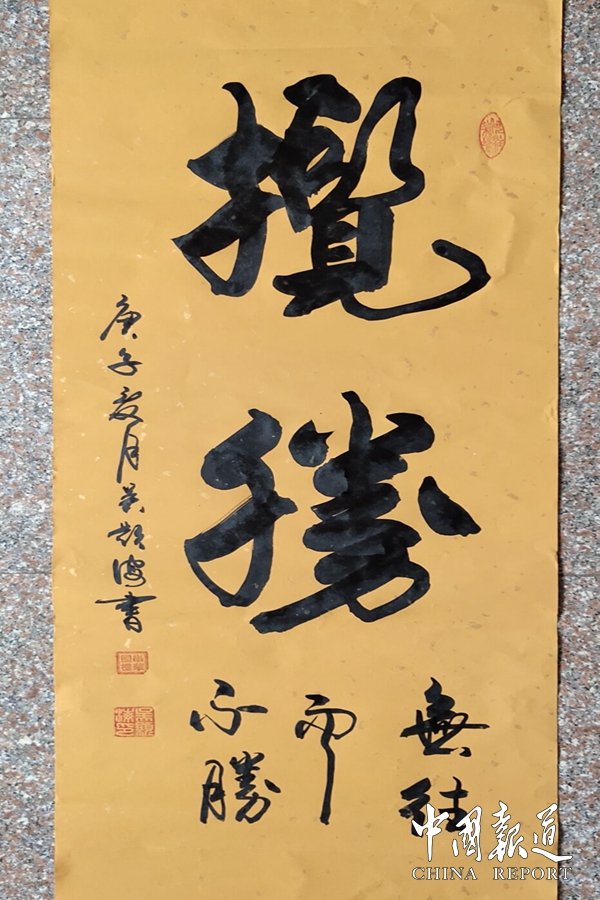 攬勝
無往
而
不勝
庚子夏月吳書
中國報道
CHINA REPORT